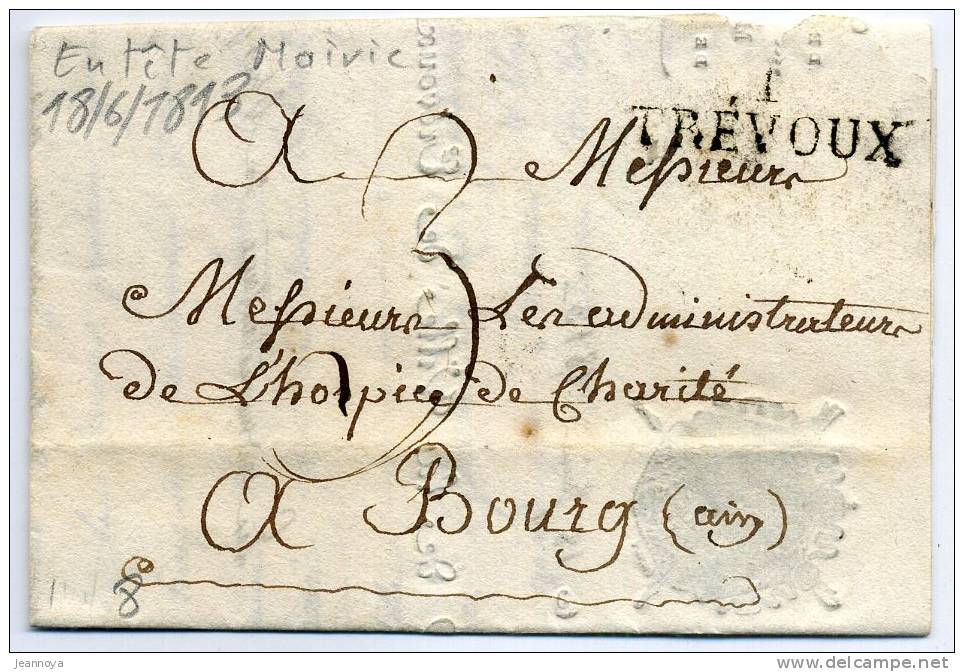 En tête Mairie
18/6/1813
1
TRÉVOUX
A Messieurs
3
Messieurs Les administrateurs
de L'hospice de Charité
A Bourg (ain)
8
jeannoya
www.delcampe.net